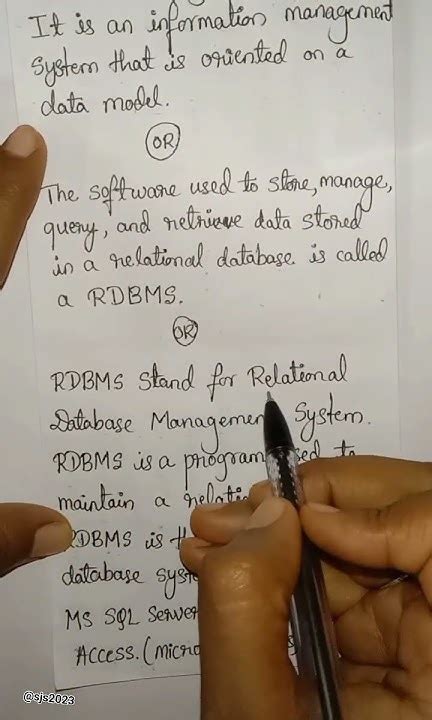 It is an information management
System that is oriented on a
data model.
OR
The software used to store, manage,
query, and retrieve data stored
in a relational database is called
a RDBMS.
OR
RDBMS Stand for Relational
Database Management System.
RDBMS is a program used to
maintain a
RDBMS is
database
MS SQL Server
Access. (
@sjs2023